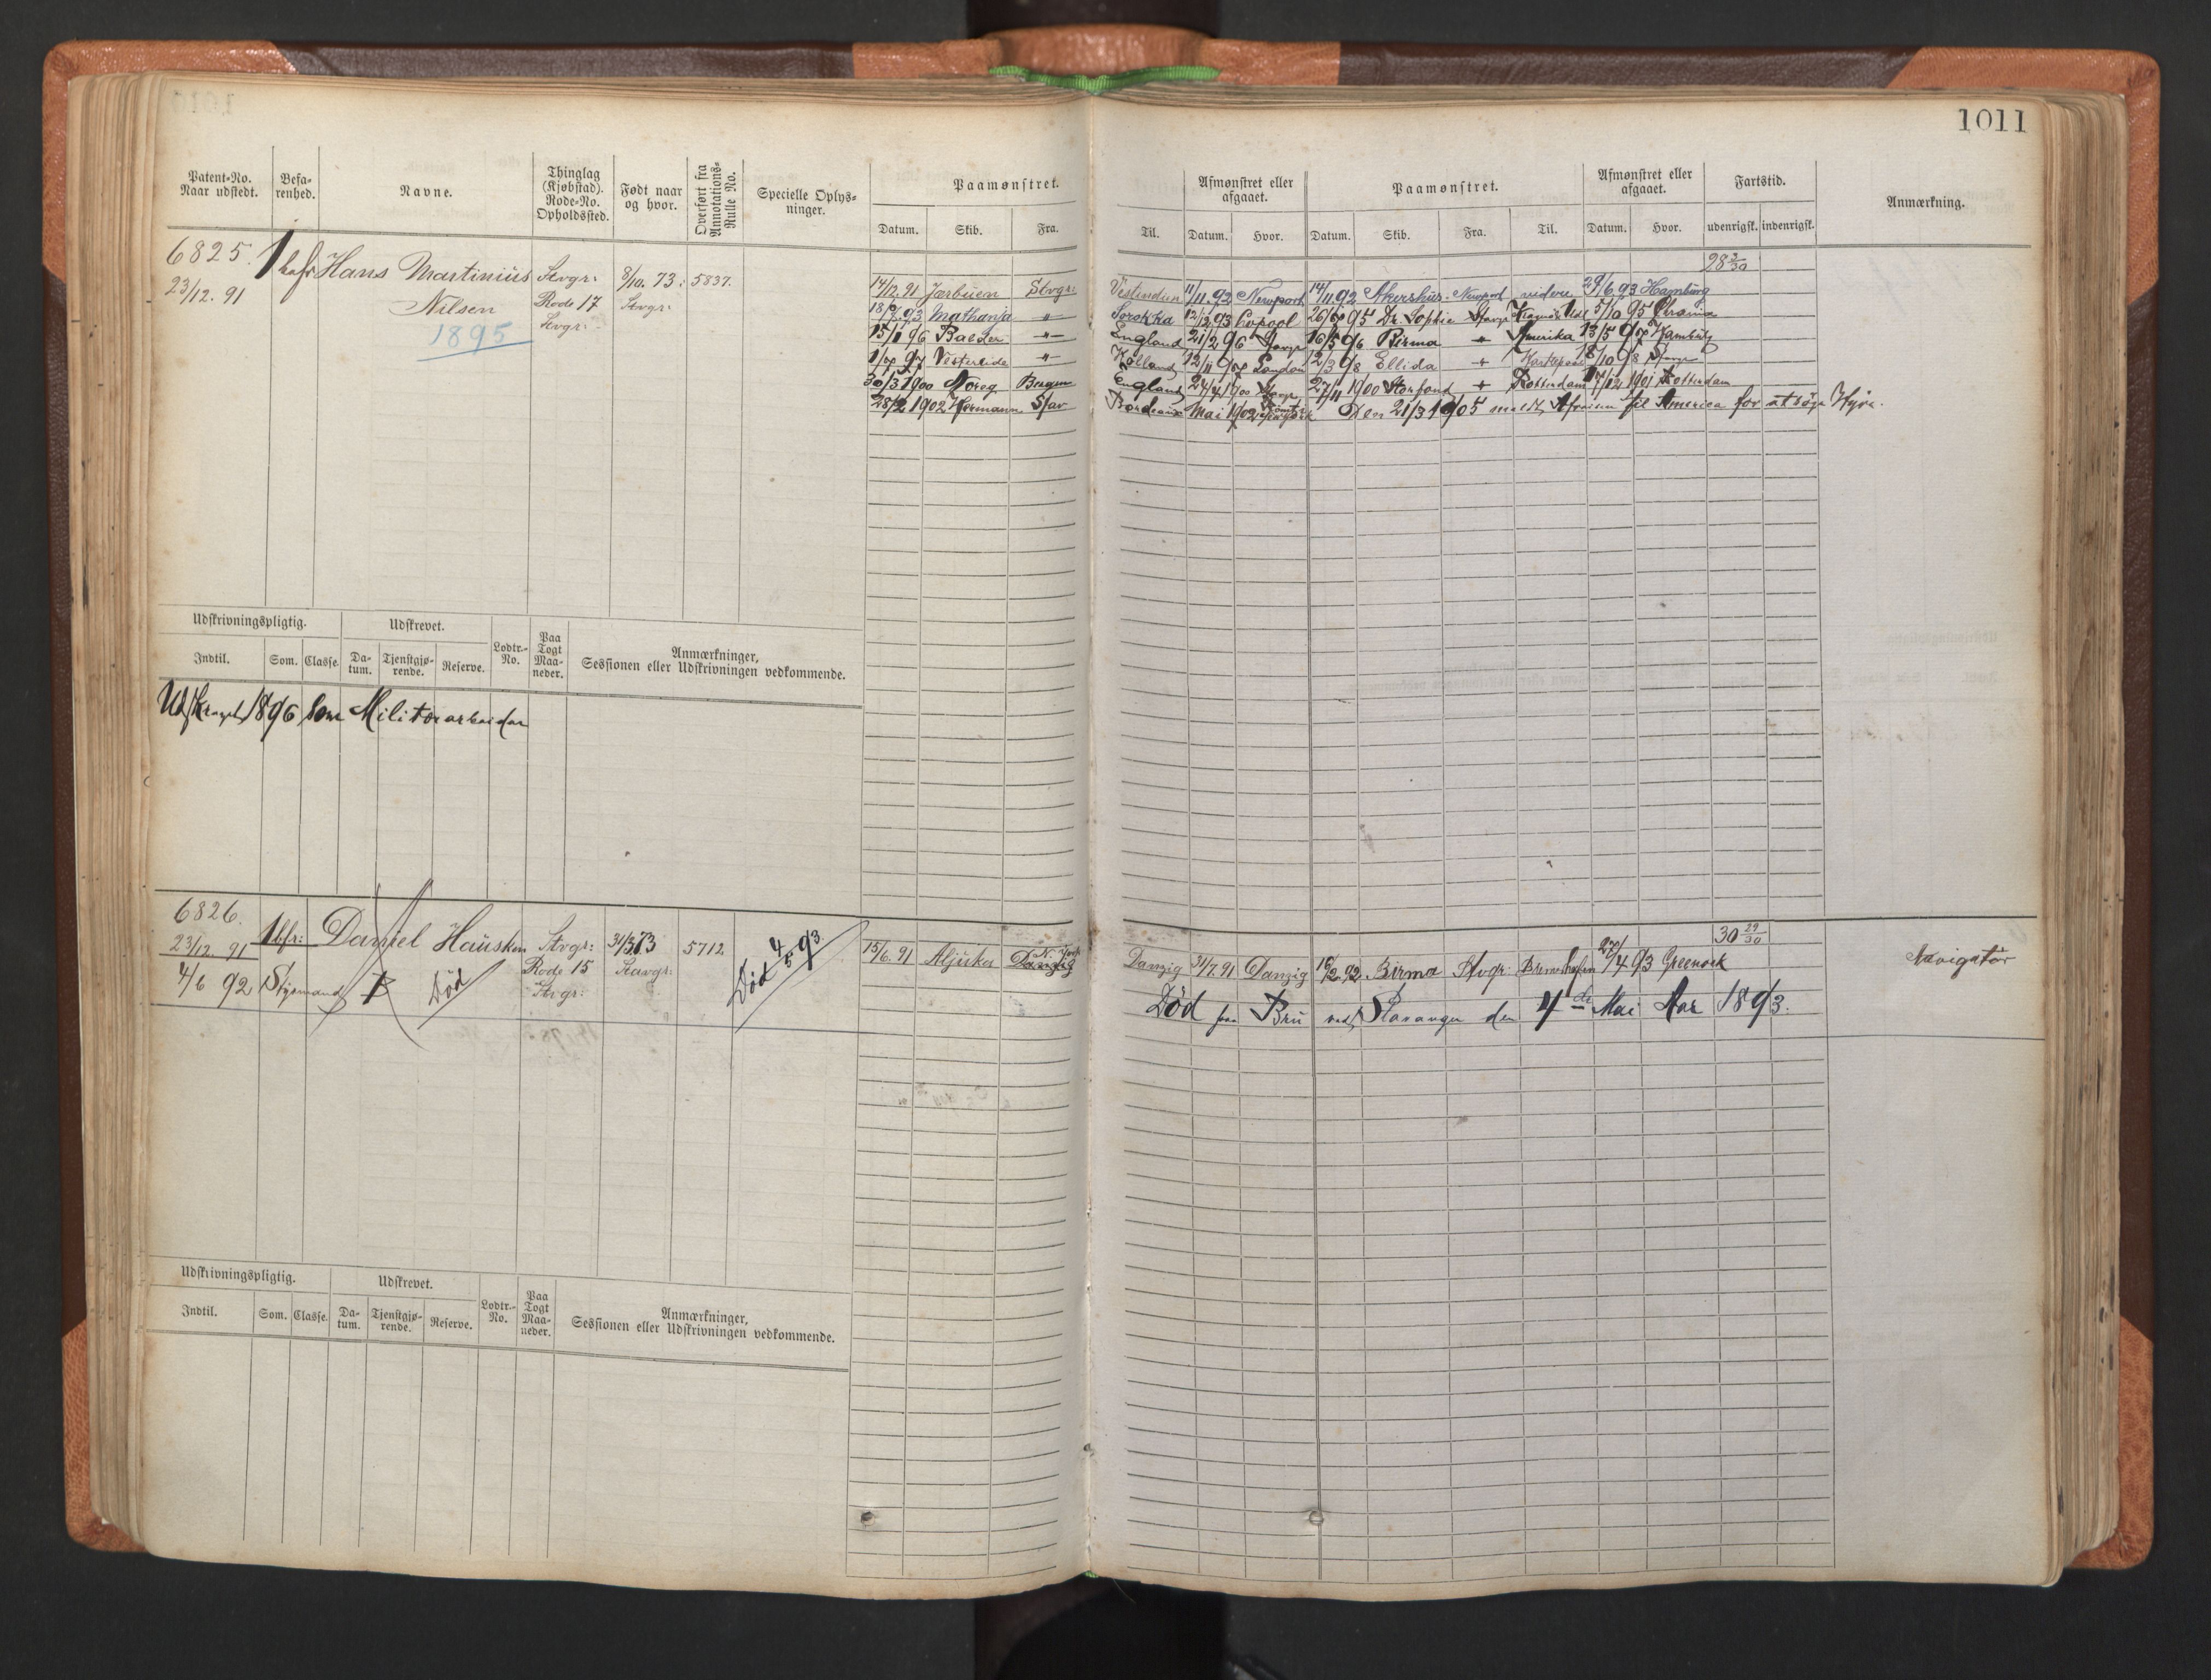 1011
Patent-No. Naar udstedt. Befarenhed. Navne. Thinglag (Kjøbstad). Rode-No. Opholdssted. Født naar og hvor. Overført fra Annotations-Rulle No. Specielle Oplysninger. Paamønstret.
Datum. Skib. Fra.
Afmønstret eller afgaaet. Paamønstret. Afmønstret eller afgaaet. Fartstid. Anmærkning.
Til. Datum. Hvor. Datum. Skib. Fra. Til. Datum. Hvor. udenrigsk. indenrigsk.
6825. 1 bafr Hans Martinius Stvgr: 8/10. 73. 5837.
23/12. 91 Nilsen Rode 17 Stvgr:
1895 Stvgr:
28 3/30
14/12. 91 Jærbuen Stvgr: Vestindien 11/11. 92 Newport 14/11. 92 Akershus. Newport videre 29/6. 93 Hamburg
18/7. 93 Mathania " Sorokka 12/12. 93 Livpool 26/7 95 Dr Sophie Stavgr 5/10 95 Chrania
15/1 96 Balder " England 21/2 96 Stavgr 16/5 96 Birma " Amerika 13/5 97 Hamburg
1/7 97 Vesterlide " Holland 12/11 97 London 12/3 98 Ellida " 18/10 98 Stavgr
30/3 1900 Noreg Bergen England 24/7 1900 Stavgr 27/11 1900 Storfond " Rotterdam 17/12 1901 Rotterdam
28/2 1902 Hermann Stav Bordeaux Mai 1902 Den 21/3 1905 meldt Afreisen til America for at søge Hyre.
Udskrivningspligtig. Udskrevet. Lodtr.-No. Paa Togt Maaneder. Anmærkninger, Sessionen eller Udskrivningen vedkommende.
Indtil. Som. Classe. Datum. Tjenstgjørende. Reserve.
Udskrevet 1896 som Militærarbeider
6826. 1 bfr: Daniel Hausken Stvgr: 31/3 73 5712. Død 4/5 93.
23/12. 91 Rode 15 Stavgr:
4/6 92 Styrmand Død Stvgr:
30 29/30
15/6. 91 Aljuka Danzig N. York Danzig 31/7. 91 Danzig 10/2. 92 Birma Stvgr: Bremerhafen 27/4 93 Greenock Navigatør
Død paa Bru ved Stavanger den 4de Mai Aar 1893.
Udskrivningspligtig. Udskrevet. Lodtr.-No. Paa Togt Maaneder. Anmærkninger, Sessionen eller Udskrivningen vedkommende.
Indtil. Som. Classe. Datum. Tjenstgjørende. Reserve.